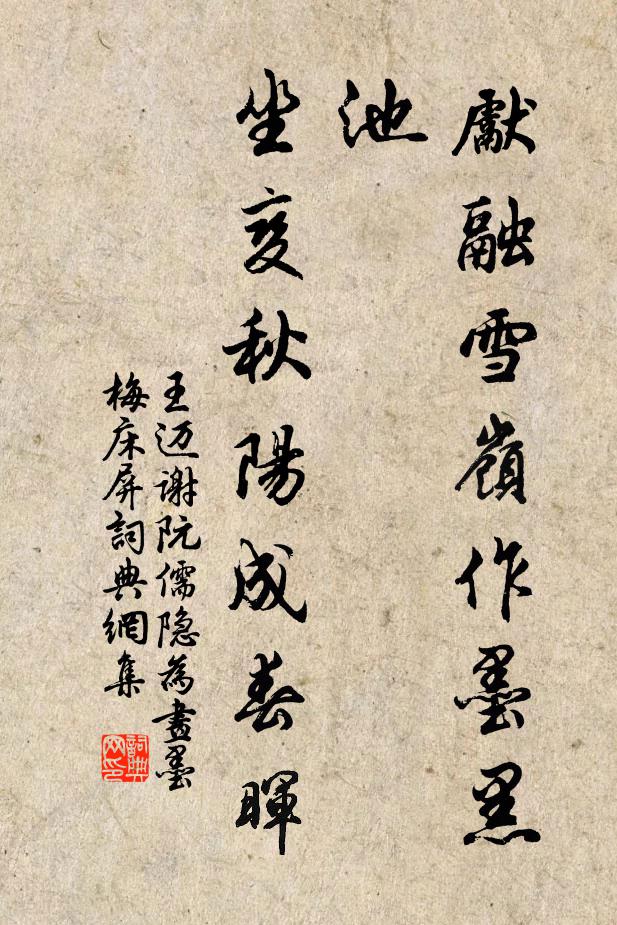 獻融雪嶺作墨黑
池
坐变秋陽成春暉
王迈谢阮儒隐為畫墨
梅床屏詞典網集
詞典网印